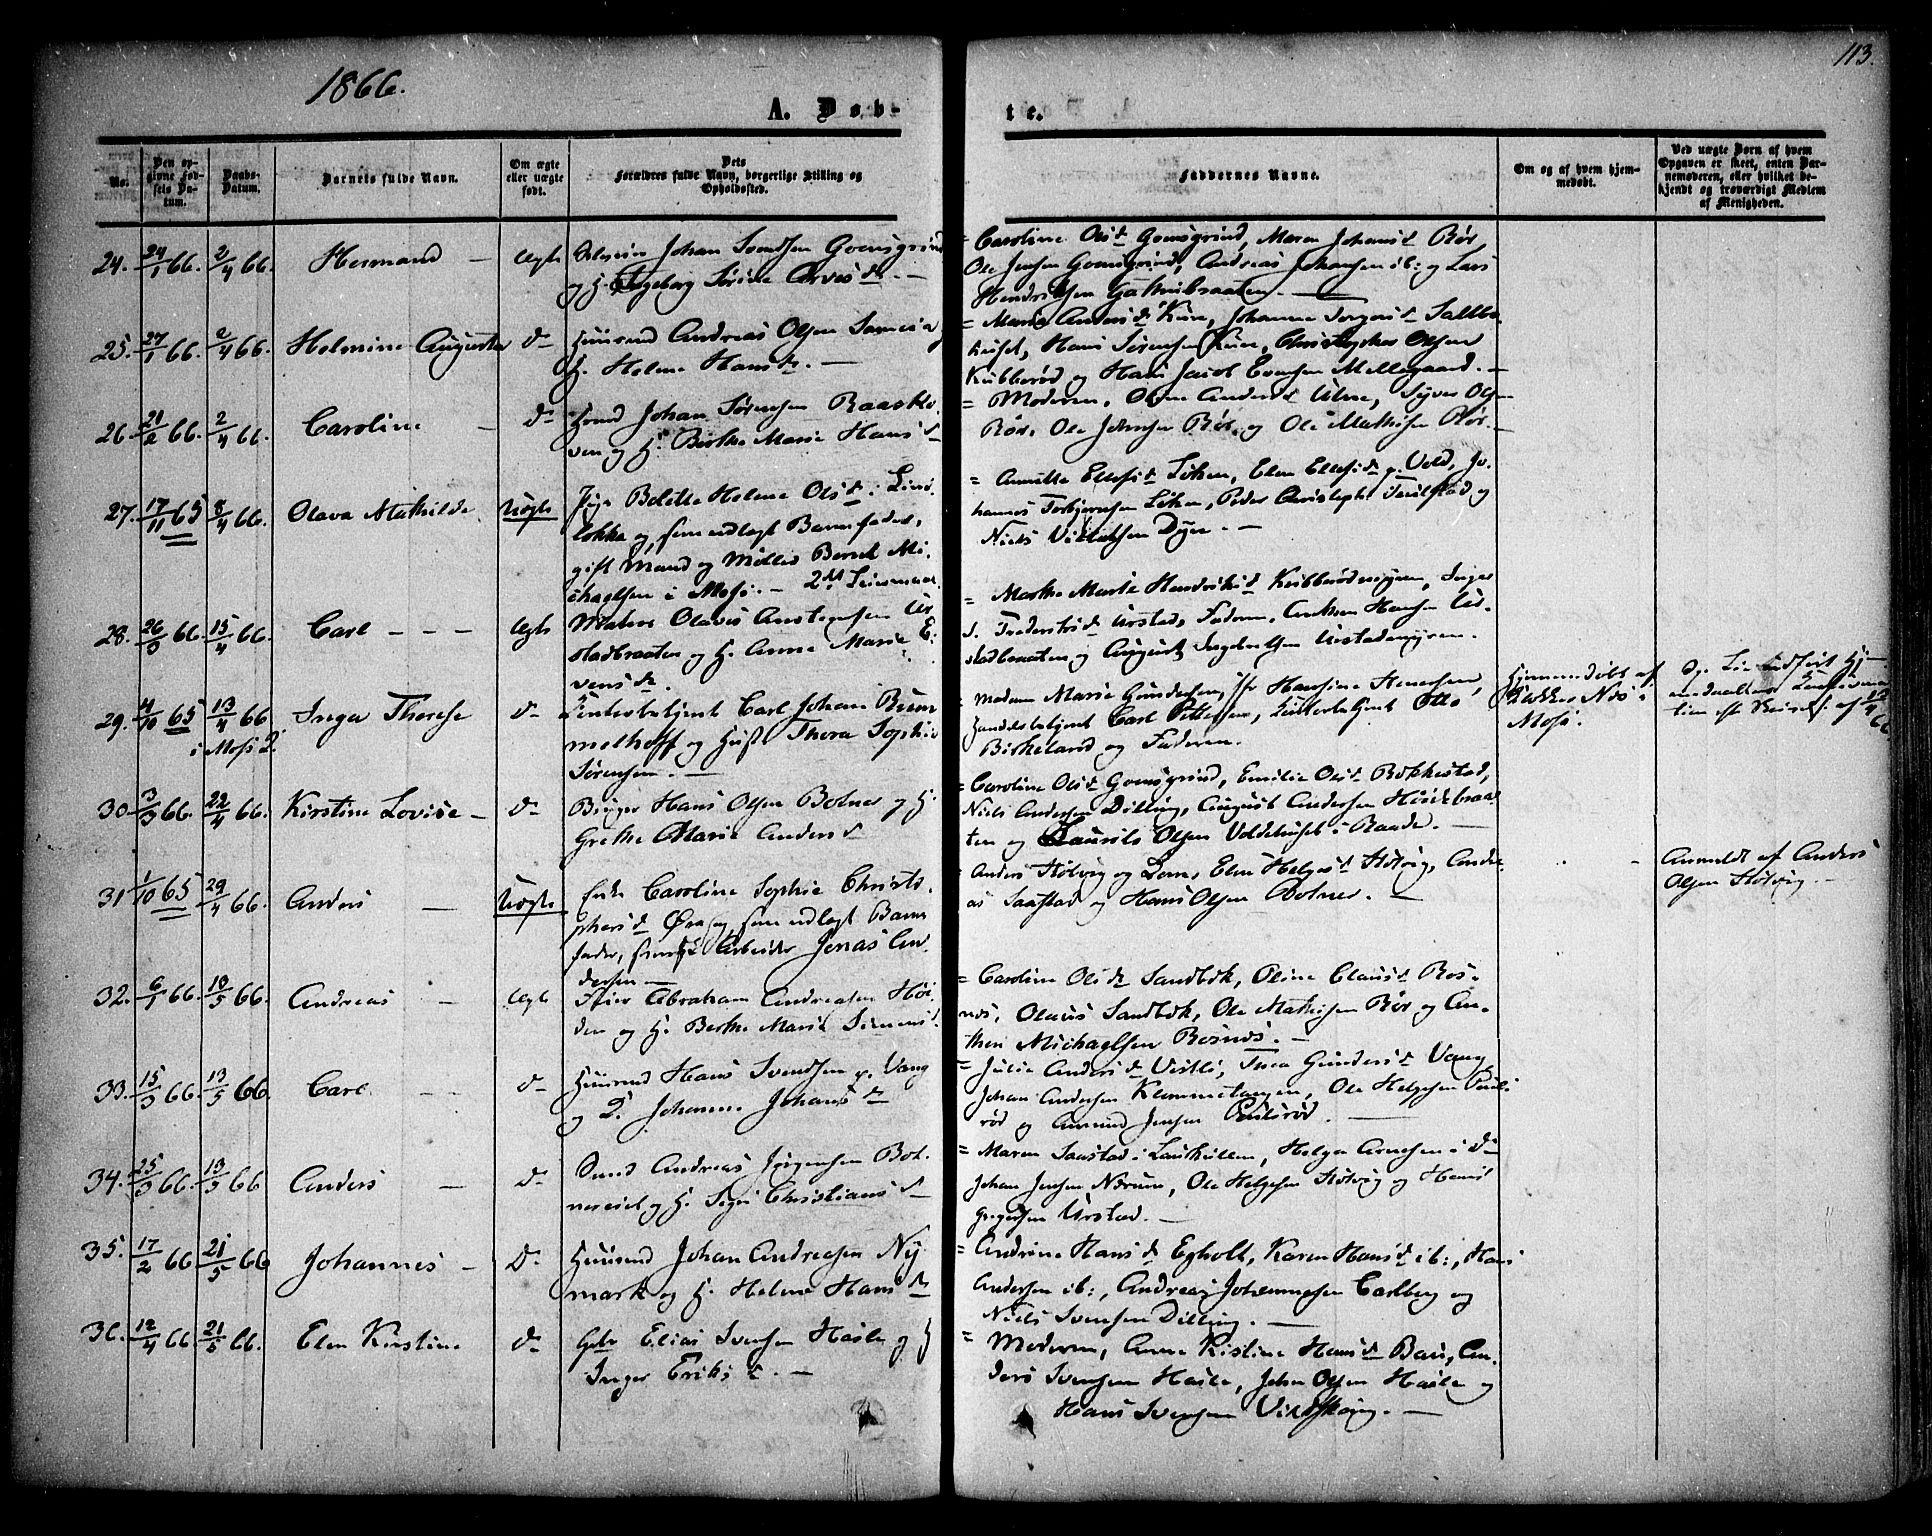 1866.
113.
A. Døb-
te.
No.
Den opgivne Fødsels Datum.
Daabs-Datum.
Barnets fulde Navn.
Om ægte eller uægte født.
Dets Forældres fulde Navn, borgerlige Stilling og Opholdssted.
Faddernes Navne.
Om og af hvem hjemmedøbt.
Ved uægte Børn af hvem Opgaven er skeet, enten Barnemoderen, eller hvilket bekjendt og troværdigt Medlem af Menigheden.
24. 24/1 66. 2/4 66. Hermand — Ægte
Johan Svendsen Goensgrind
og H. Ingeborg Sørine Arvesd. —
= Caroline Olsd Goensgrind, Maren Johansd Rør,
Ole Jensen Goensgrind, Andreas Johansen ib: og Lars
Hendriksen —
25. 27/1 66. 2/4 66. Helmine Augusta do
Huusmd Andreas Olsen
H. Helene Hansdr. —
= Marie Andersd Kure, Johanne
Hans Sørensen Kure, Christopher Olsen
Kubberød og Hans Jacob Evensen Mellegaard. —
26. 21/2 66. 2/4 66. Caroline — do
Johan Sørensen Raasklo-
ven og H. Berthe Marie Hansd
= Moderen, Andersd Syver Olsen
Rør, Ole Johnsen Rør og Ole Mathisen Rør. —
27. 17/11 65 8/4 66. Olava Mathilde Uægte
Pige Belette Helene Olsd i Lind-
løkka og som udlagt Barnefader,
gift Mand og Møller Bernt Mi-
chaelsen i Moss. — 2det Leiermaal
= Annette Ellefsd Løken, Elen Ellefsd p. Vold, Jo-
hannes Torbjørnsen Løken, Peder Christophs. og
Niels Dyre. —
28. 26/3 66. 15/4 66. Carl — — — Ægte
Olavus Anstensen Ur-
stadbraaten og H. Anne Marie E-
vensdr.
= Marthe Marie Hendriksd Kubberødmyren, Inger
S. Urstad, Faderen, Anthon Hansen Ur-
stadbraaten og August Ingebretsen Urstadmyren.
29. 4/10 65 13/4 66 Inga Therese do
i Moss
Contorbetjent Carl Johan Rum
melhoff og Hust. Thora Sophie
Sørensen. —
= Madam Marie Gundersen, Jfr Hansine
Handelsbetjent Carl Pettersen, Contorbetjent Otto
Birkeland og Faderen.
Hjemmedøbt af
Klokker Næs i
Moss.
30. 3/3 66. 22/4 66. Kirstine Lovise — do
Hans Olsen Bolner og H.
Grethe Marie Andersd
= Caroline Olsd Goensgrind, Emilie Olsd Rokkestad,
Niels Andersen Dilling, August Andersen
ten og Laurits Olsen Voldehuset i Raade. —
31 1/10 65 29/4 66. Anders — Uægte
Enke Caroline Sophie Christo-
phersd Øra og som udlagt Barne
fader, Arbeider Jonas An-
dersen —
= Anders Støtvig og Kone, Elen Helgesd Støtvig, Andre-
as Saastad og Hans Olsen Bolner. —
Anmeldt af Anders
Olsen Støtvig. —
32. 6/1 66. 10/5 66. Andreas — Ægte
Abraham Andreasen Høi-
den og H. Berthe Marie Simensd.
= Caroline Olsd Sandbæk, Oline Clausd Ros-
næs, Olaus Sandbæk, Ole Mathisen Rør og An-
thon Michaelsen Rosnæs. —
33. 15/3 66. 13/5 66. Carl — do
Huusmd Hans Svendsen p. Vang
og H. Johanne Johansd
= Julie Andersd Vestli, Thea Gundersd Vang,
Johan Andersen Klommestangen, Ole Helgesen
rød og Amund Jensen —
34. 25/3 66. 13/5 66 Anders — do
Andreas Jørgensen Bol-
nereiet og H. Sigri Christiansd
= Maren Saastad i Helga Arnesen i do
Johan Jensen Nørum, Ole Helgesen Støtvig og Hans
Gregersen Urstad. —
35. 17/2 66 21/5 66 Johannes — do
Huusmd Johan Andreasen Ny-
mark og H. Helene Hansd
= Andrine Hansd Egholt, Karen Hansd ib:, Hans
Andersen ib:, Andreas Johannesen Carlberg og
Niels Svensen Dilling. —
36. 12/4 66. 21/5 66. Elen Kirstine do
Gbr Elias Svensen Hasle og H
Inger Eriksd. —
= Moderen, Anne Kistine Hansd Bau, An-
ders Svensen Hasle, John Olsen Hasle og
Hans Svensen —